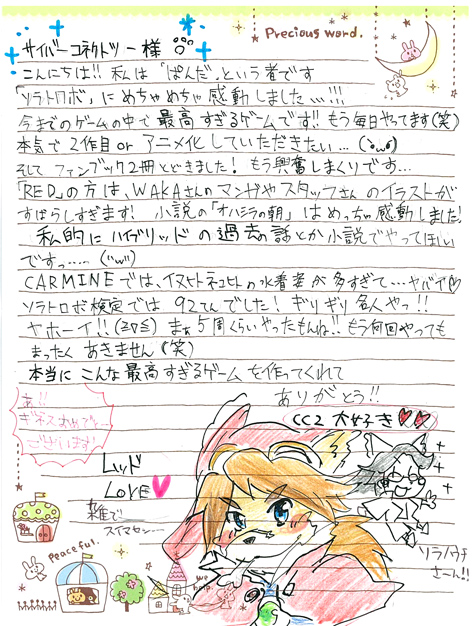 Precious word.
サイバーコネクトツー様
こんにちは!! 私は「ぱんだ」という者です
「ソラトロボ」にめちゃめちゃ感動しました…!!!
今までのゲームの中で最高すぎるゲームです!! もう毎日やってます(笑)
本気で2作目orアニメ化していただきたい…(`･ω･´)
そしてファンブック2冊とどきました! もう興奮しまくりです…
「RED」の方は、WAKAさんのマンガやスタッフさんのイラストが
すばらしすぎます! 小説の「オハシラの朝」はめっちゃ感動しました!
私的にハイブリッドの過去の話とか小説でやってほしい
ですっ……(''ω'')
CARMINEでは、イヌヒトネコヒトの水着姿が多すぎて…ヤバイ♡
ソラトロボ検定では92てんでした! ギリギリ名人やっ!!
ヤホーイ!!(≧▽≦) まぁ5周くらいやったもんね!! もう何回やっても
まったくあきません(笑)
本当にこんな最高すぎるゲームを作ってくれて
ありがとう!!
CC2 大好き♥♥
あ!!
ギネスおめでとー
ございます!
レッド
LOVE♥
雑で
スイマセン…
ソラノウチ
さーん!!
Peaceful.
we
help